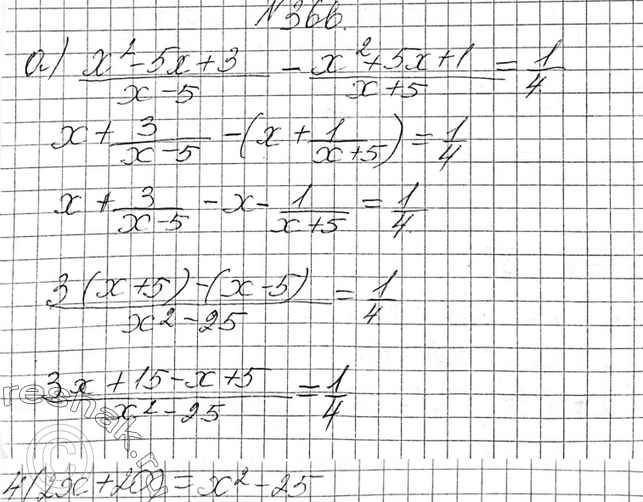 №366.
а) (x²-5x+3)/(x-5) - (x²+5x+1)/(x+5) = 1/4
x + 3/(x-5) - (x + 1/(x+5)) = 1/4
x + 3/(x-5) - x - 1/(x+5) = 1/4.
(3(x+5)-(x-5))/(x²-25) = 1/4
(3x+15-x+5)/(x²-25) = 1/4
4(2x+20) = x²-25
reshak.ru